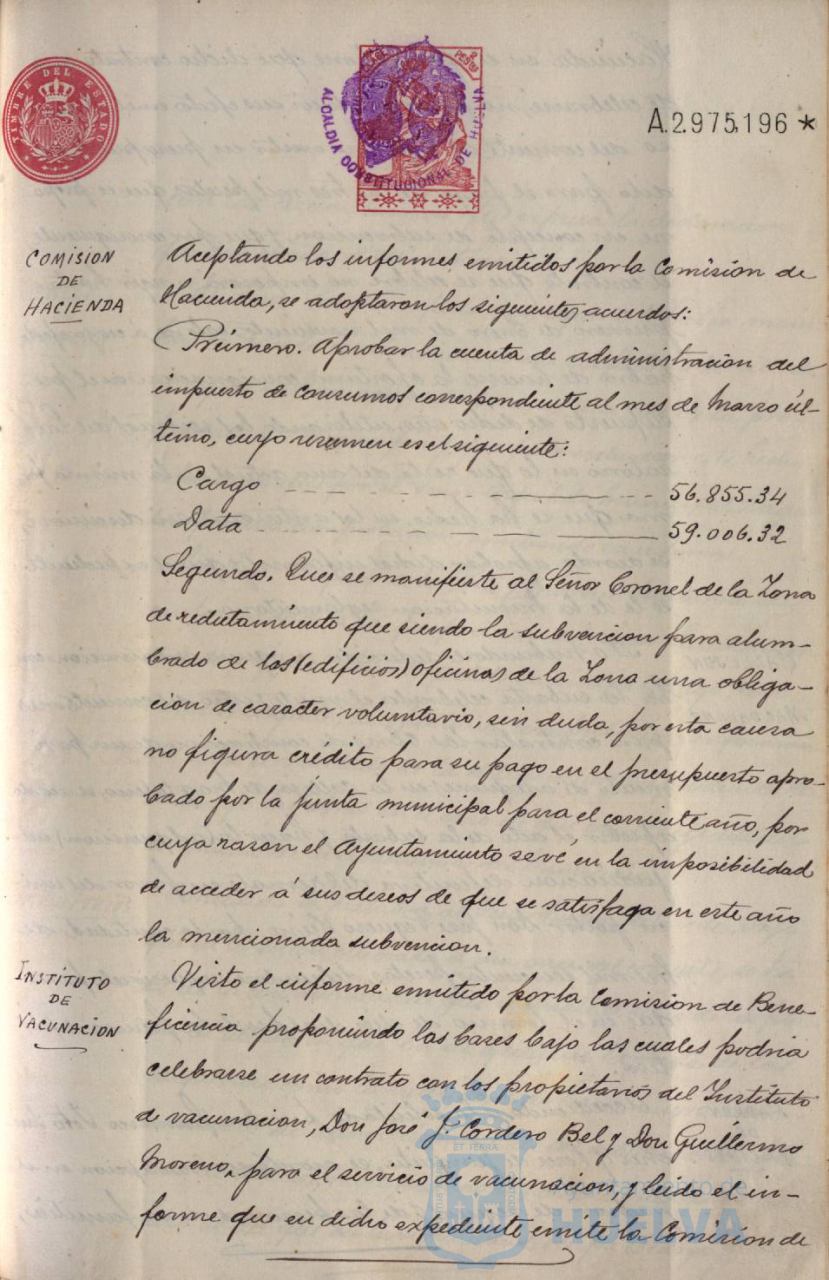 TIMBRE DEL ESTADO
ALCALDIA CONSTITUCIONAL DE HUELVA
A.2.975,196 *
COMISION
DE
HACIENDA
Aceptando los informes emitidos por la Comision de
Hacienda, se adoptaron los siguientes acuerdos:
Primero. Aprobar la cuenta de administracion del
impuesto de consumos correspondiente al mes de Marzo úl-
timo, cuyo resumen es el siguiente:
Cargo - - - - - 56.855.34
Data - - - - - 59.006.32
Segundo. Que se manifieste al Señor Coronel de la Zona
de reclutamiento que siendo la subvencion para alum-
brado de las (edificios) oficinas de la Zona una obliga-
cion de caracter voluntario, sin duda, por esta causa
no figura crédito para su pago en el presupuesto apro-
bado por la junta municipal para el corriente año, por
cuya razon el Ayuntamiento se vé en la imposibilidad
de acceder á sus deseos de que se satisfaga en este año
la mencionada subvencion.
INSTITUTO
DE
VACUNACION
Visto el informe emitido por la Comision de Bene-
ficencia proponiendo las bases bajo las cuales podria
celebrarse un contrato con los propietarios del Instituto
de vacunacion, Don José J. Cordero Bel y Don Guillermo
Moreno, para el servicio de vacunacion, y leido el in-
forme que en dicho expediente emite la Comision de
HUELVA